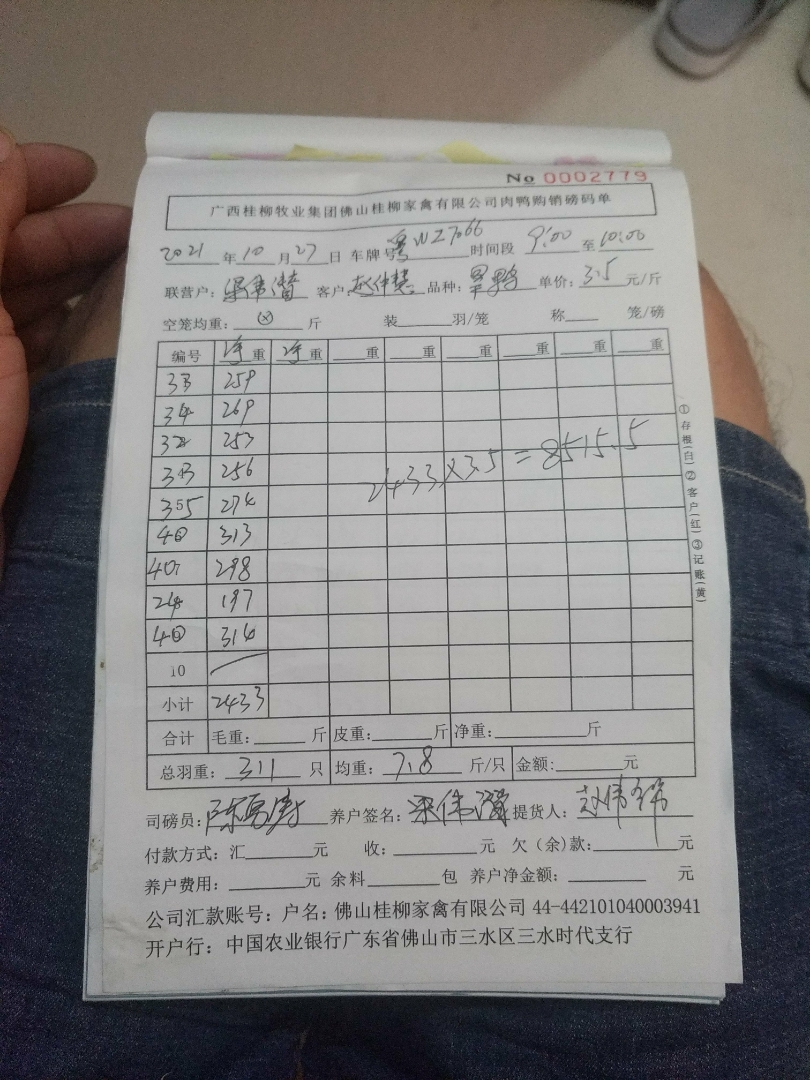 No 0002779
广西桂柳牧业集团佛山桂柳家禽有限公司肉鸭购销磅码单
2021年10月27日 车牌号粤WZ7066 时间段9:00至10:00
联营户: 客户: 品种: 单价:3.5元/斤
空笼均重: 斤 装 羽/笼 称 笼/磅
编号 净重 净重 重 重 重 重 重 重
33 259
34 269
32 253
33 256
35 274
40 313
40 298
24 197
40 314
10
小计 2433
2433×3.5=8515.5
合计 毛重: 斤 皮重: 斤 净重: 斤
总羽重: 311 只 均重: 7.8 斤/只 金额: 元
司磅员: 养户签名: 梁伟 提货人:
付款方式: 汇 元 收: 元 欠(余)款: 元
养户费用: 元 余料 包 养户净金额: 元
公司汇款账号: 户名: 佛山桂柳家禽有限公司 44-442101040003941
开户行: 中国农业银行广东省佛山市三水区三水时代支行
①存根(白)②客户(红)③记账(黄)